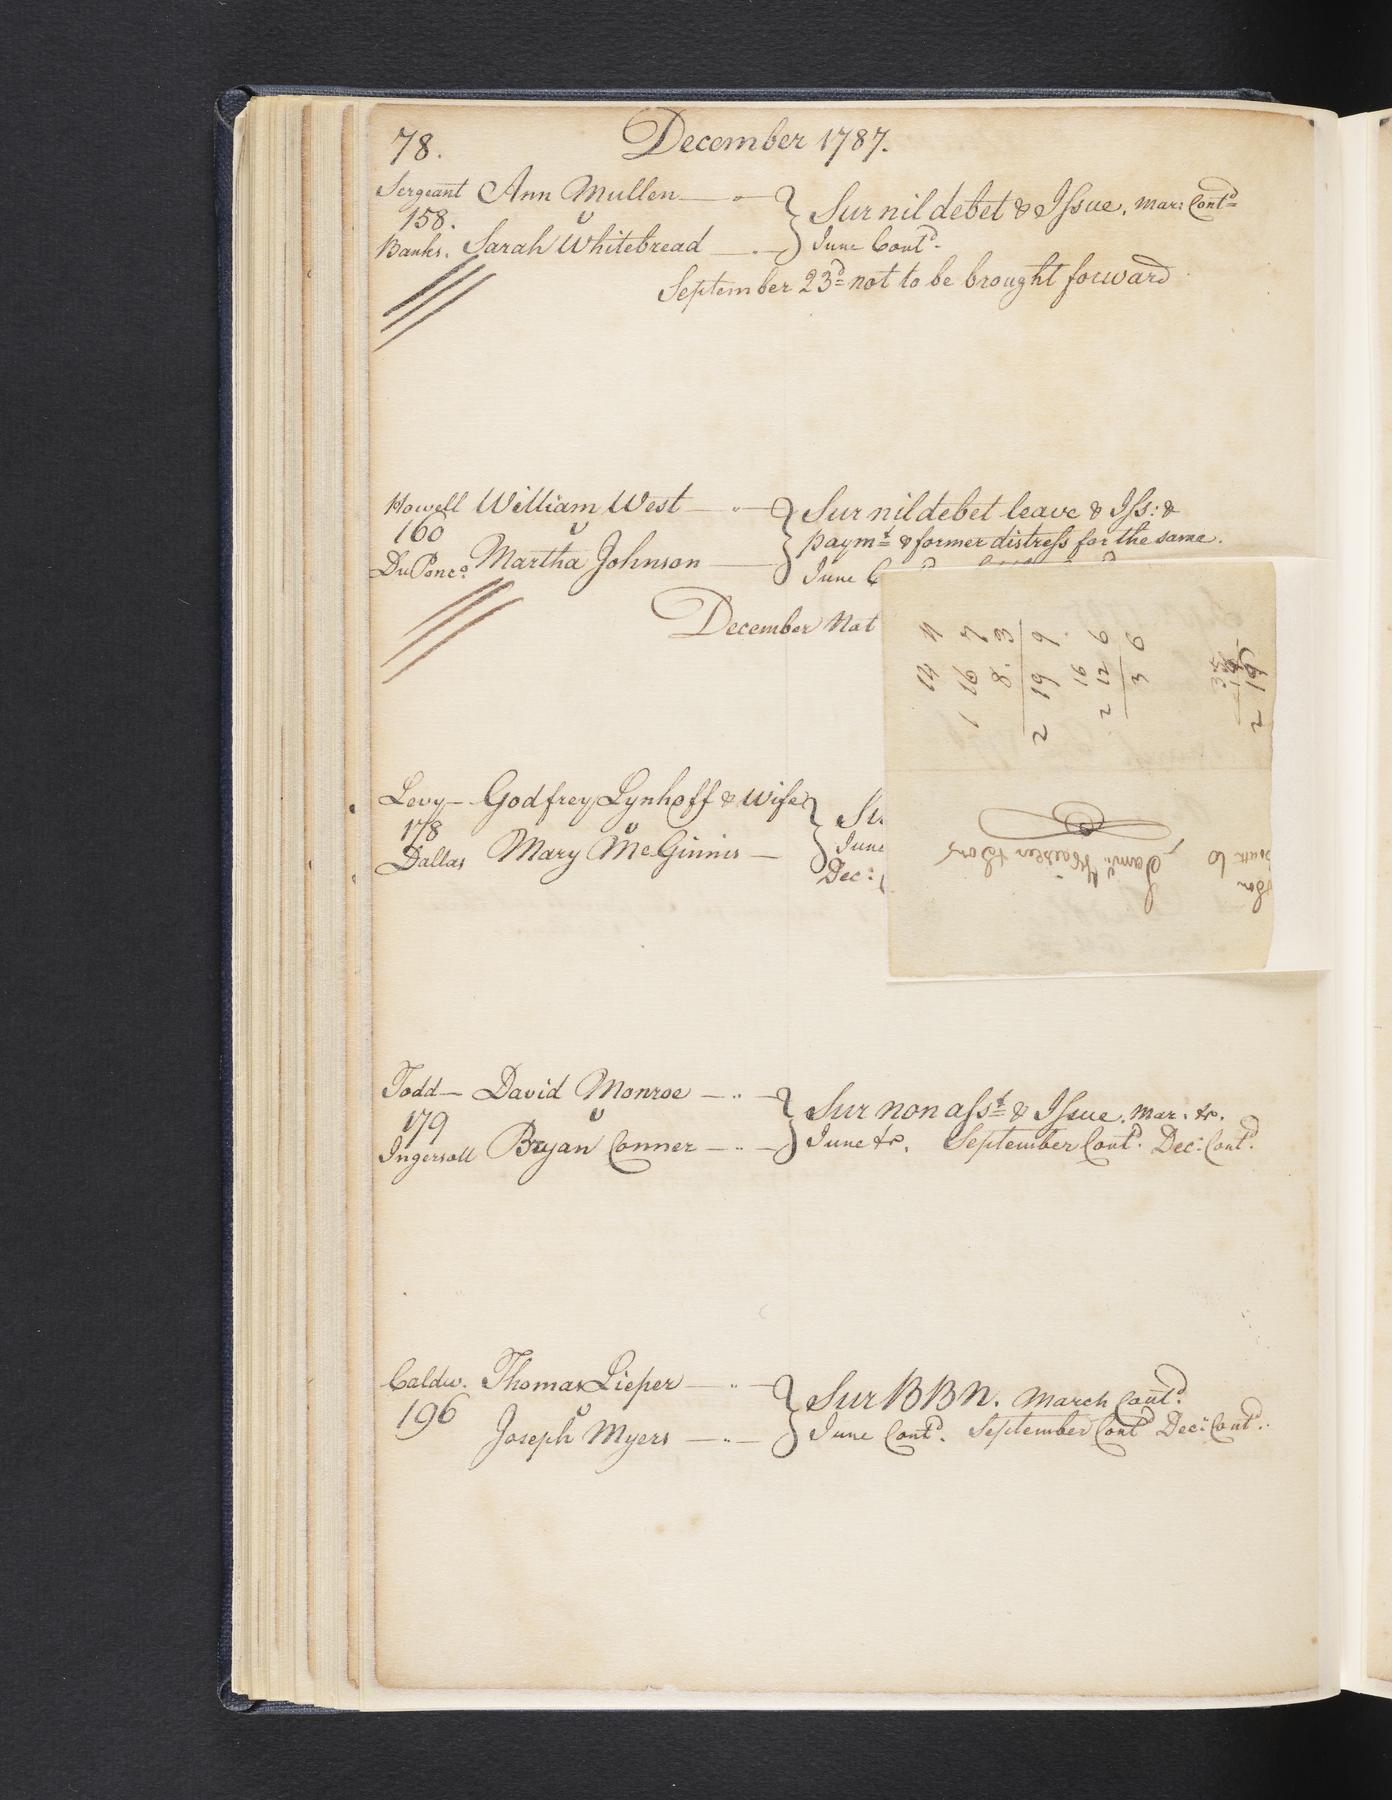 78. December 1787.
Sergeant Ann Mullen Sur nil debet & Issue. Mar: Contd
158. v
Banks. Sarah Whitebread June Contd.
September 23d not to be brought forward
Howell William West Sur nil debet leave & Iss: &
160 v paymt & former distress for the same.
DuPonco. Martha Johnson June
December Not
Levy Godfrey Lynhoff & Wife
178 v June
Dallas Mary McGinnis Dec:
4 7 3 9 6 6
14 16 8. 19 16 12 3
1 2 2
2 19
Saml. & Sons
Todd David Monroe Sur non asst & Issue. Mar: &c.
179 v
Ingersoll Bryan Conner June &c. September Contd. Dec: Contd.
Caldw. Thomas Lieper Sur BBN. March Contd.
196 v
Joseph Myers June Contd. September Contd Dec: Contd.